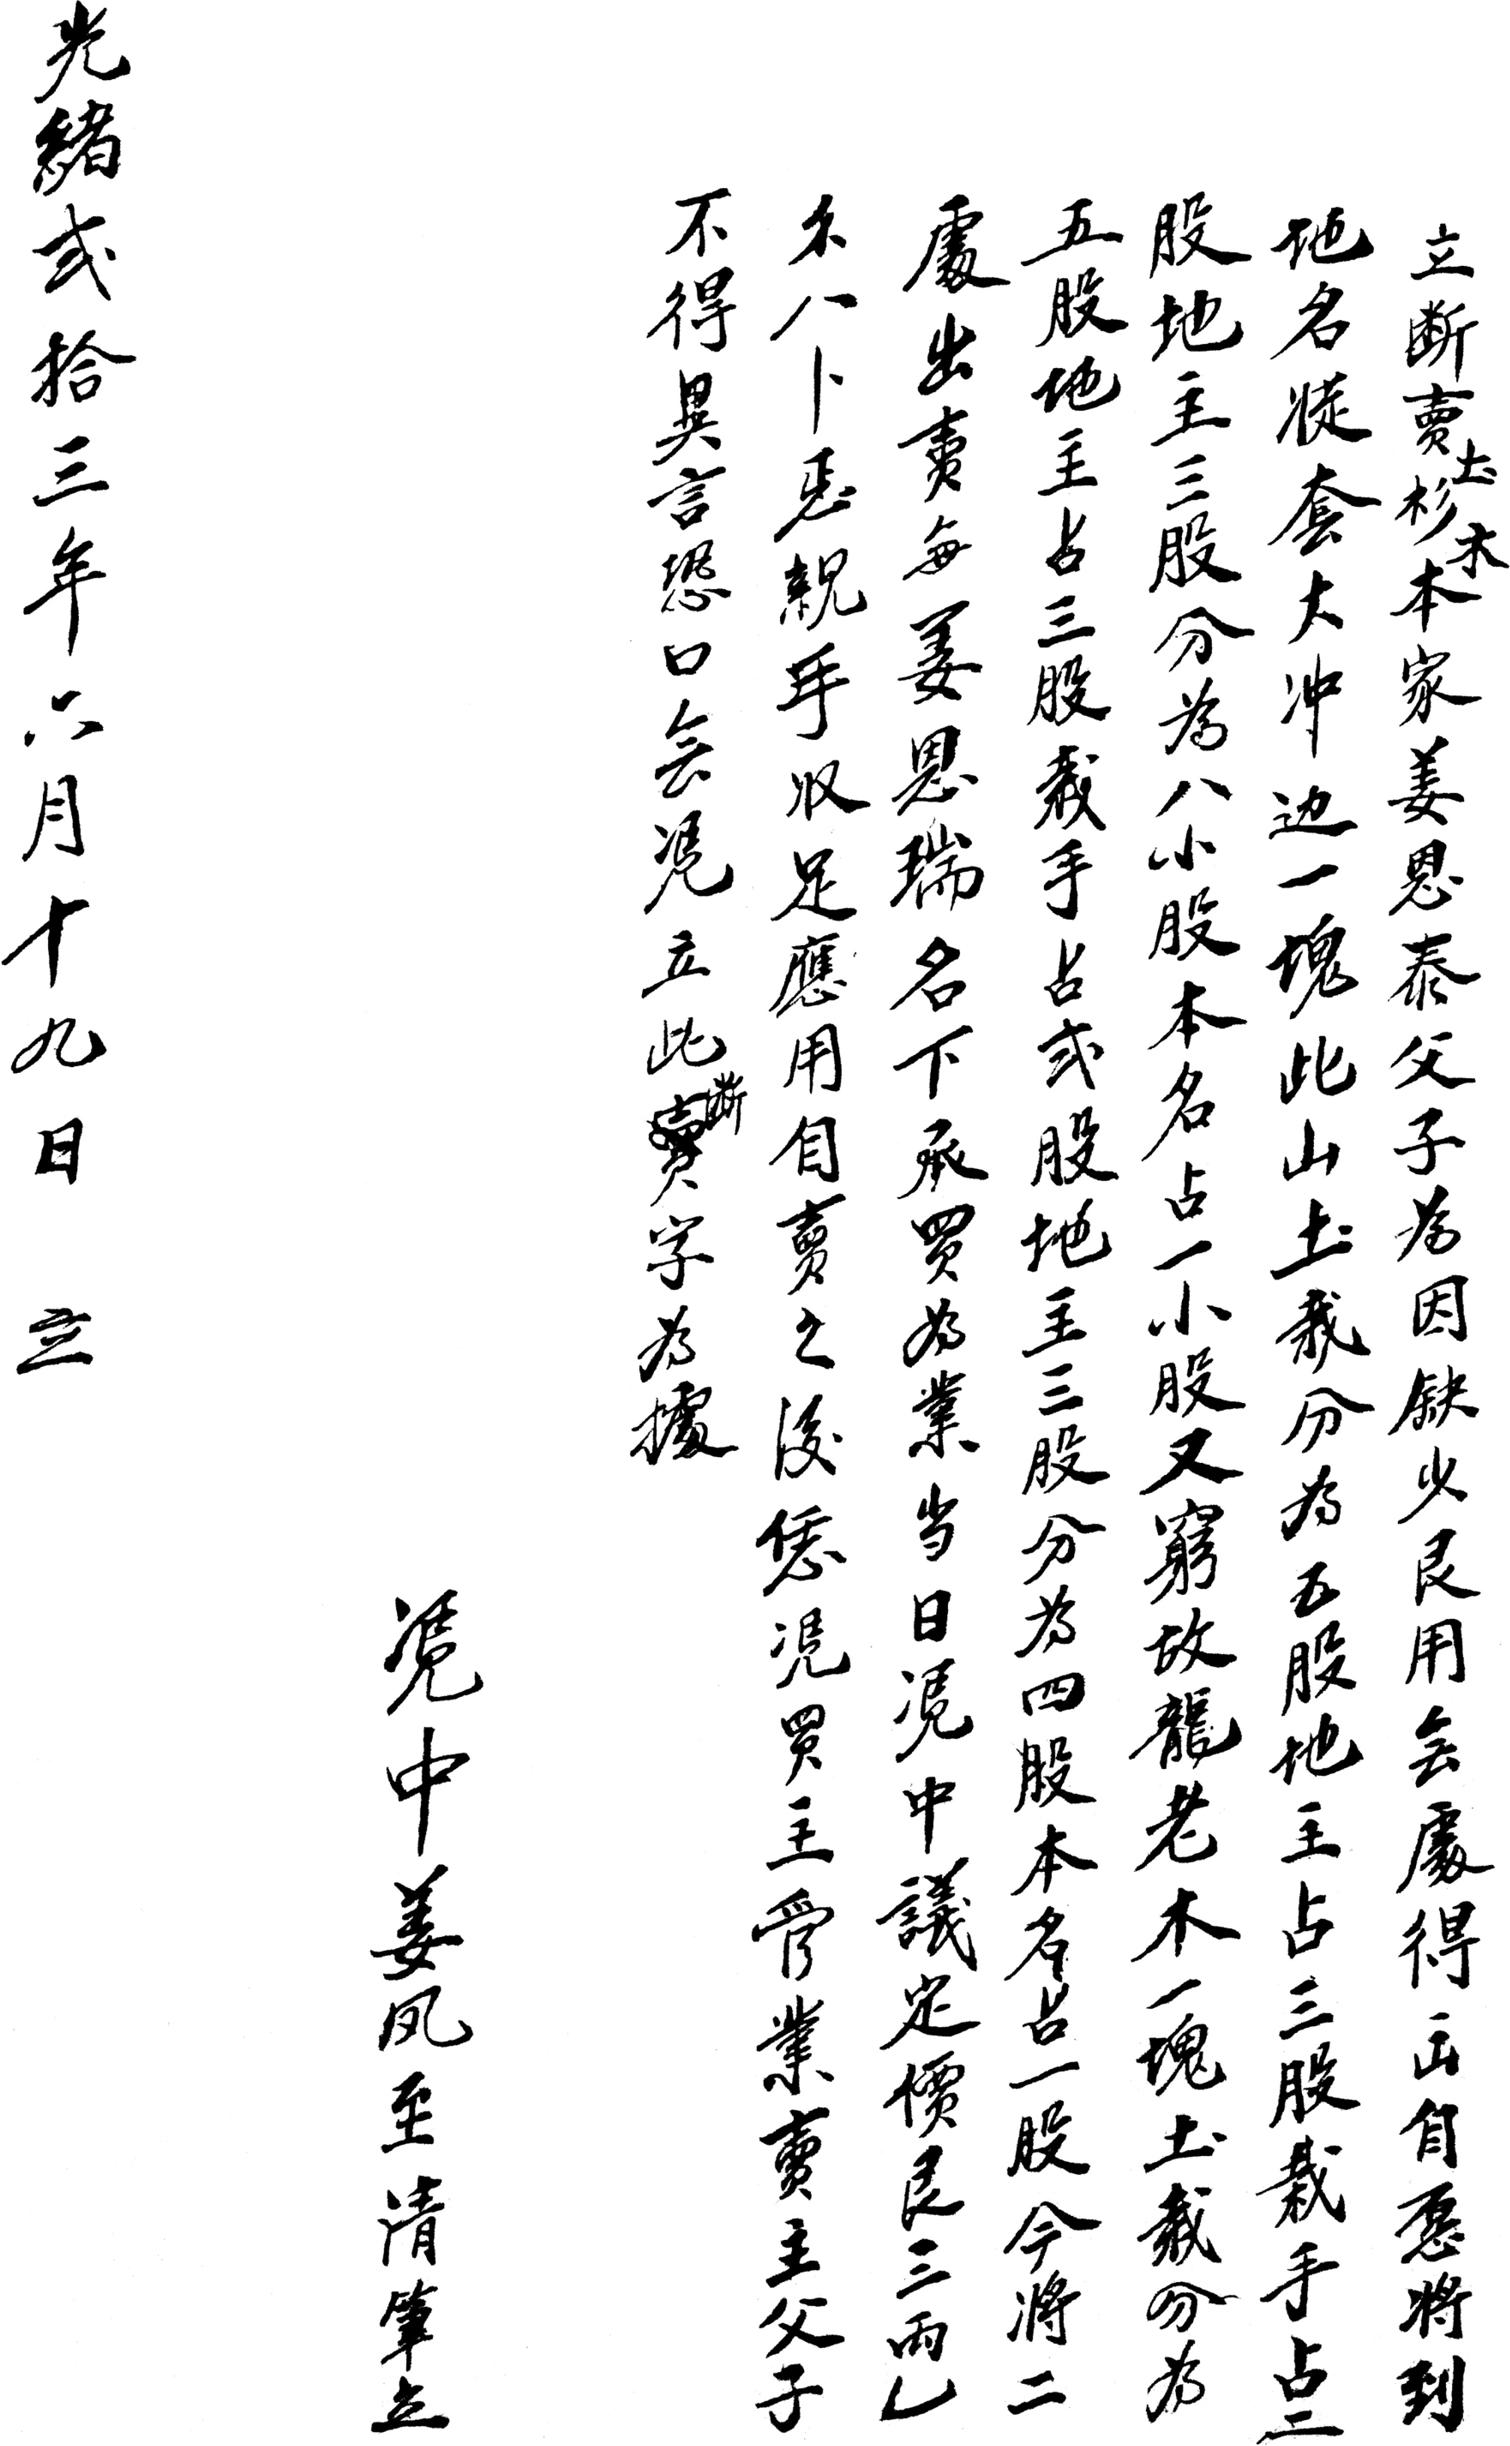 立断賣杉土木本家姜恩泰父子為因缺少艮用会處得出自愿將到
地名從套大冲边一塊此山土栽分為五股地主占三股栽手占二
股地主三股分為八小股本名占一小股又窮故龍老木一塊土栽分為
五股地主占三股栽手占弍股地主三股分為四股本名占一股今將二
處出賣每姜恩瑞名下承買為業当日凴中議定價艮三両乚
尔八卜 親手收足應用自賣之後恁凴買主管業賣主父子
不得異言恐口会凴立此断賣字為據
凴中姜凤至清筆立
光緒弍拾三年六月十九日 立